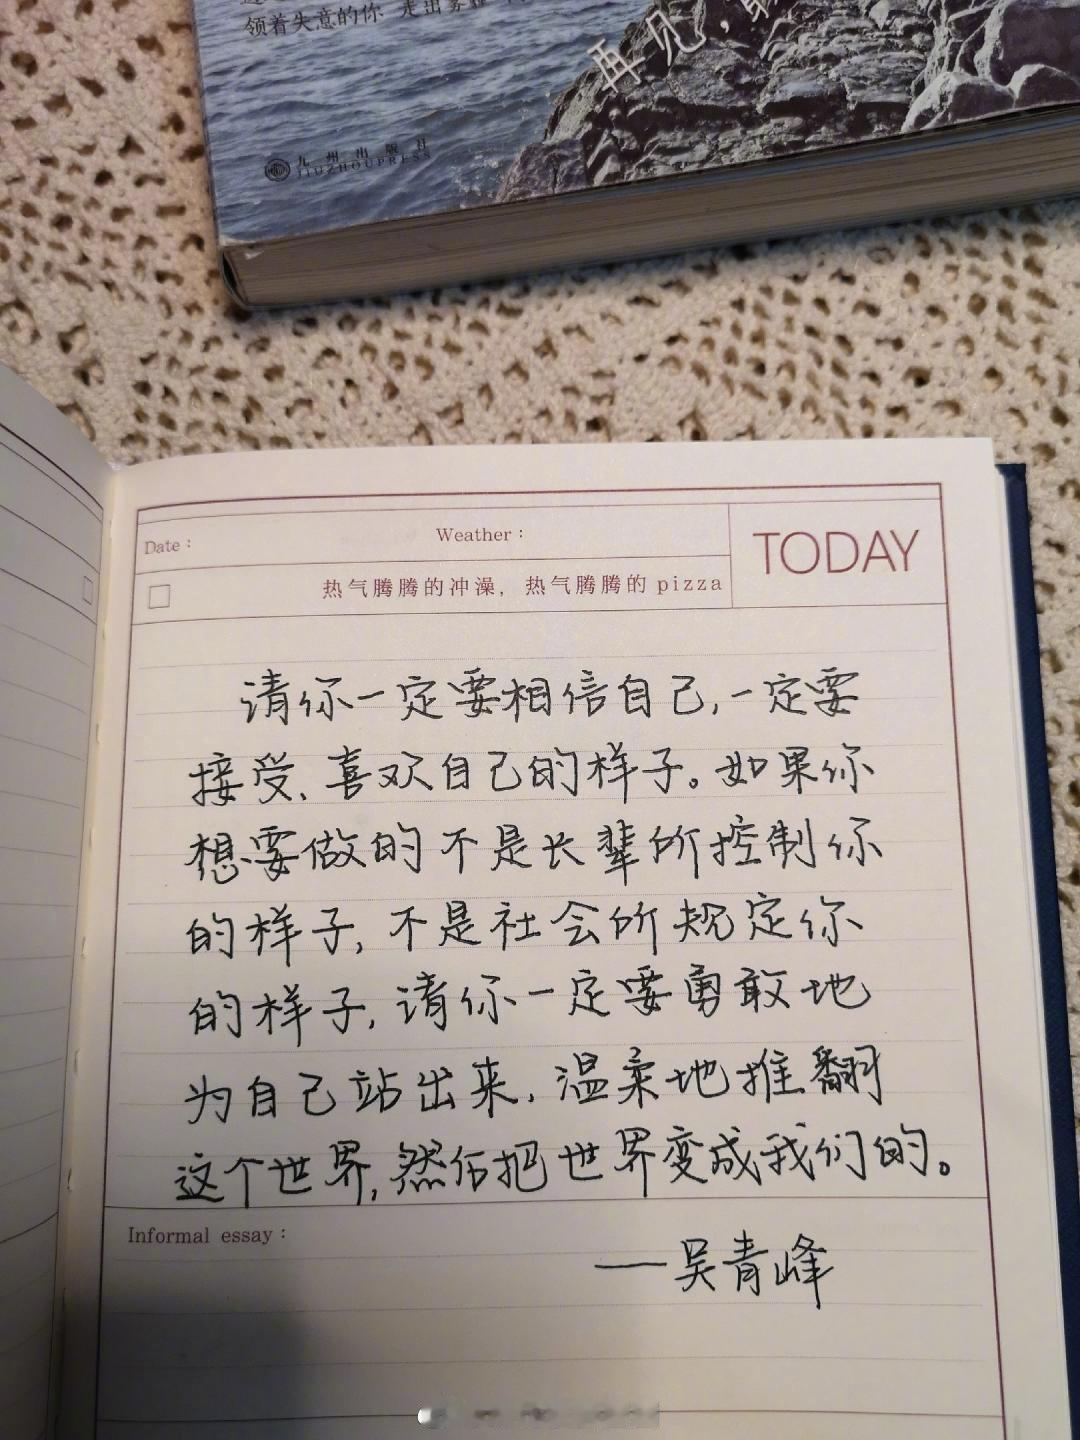 领着失意的你 走出雾霾
再见，
九州出版社
JIUZHOUPRESS
Date：
Weather：
TODAY
热气腾腾的冲澡，热气腾腾的 pizza
请你一定要相信自己，一定要
接受、喜欢自己的样子。如果你
想要做的不是长辈所控制你
的样子，不是社会所规定你
的样子，请你一定要勇敢地
为自己站出来，温柔地推翻
这个世界，然后把世界变成我们的。
Informal essay：
——吴青峰